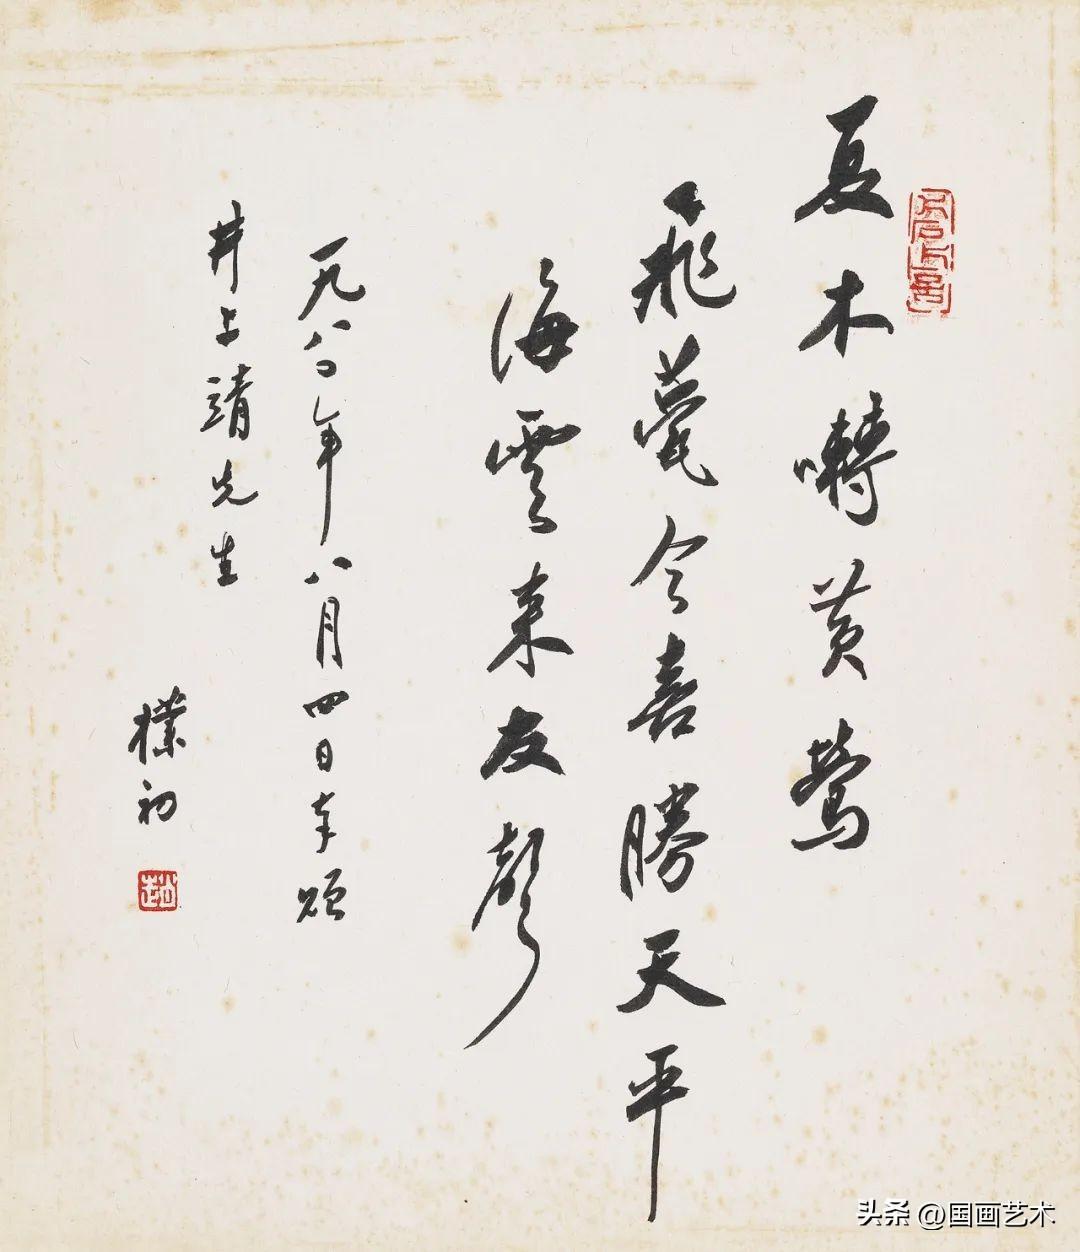 夏木囀黄鶯
飛甍今喜勝天平
海雲来友聲
一九八〇年八月四日奉頌
井上靖先生
樸初
趙
头条 @国画艺术